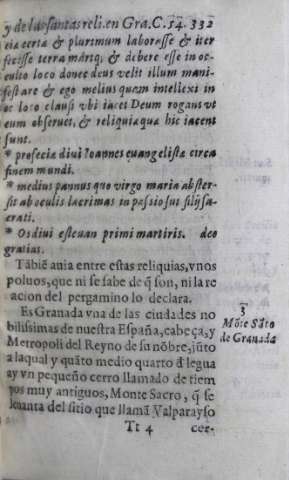 y de las santas reli. en Gra. C. 54. 332
cia certa & plurimum laborasse & iter
fecisse terra mariq; & debere esse in oc-
culto loco donec deus velit illum mani-
fest are & ego melius quam intellexi in
oc loco clausi vbi iacet Deum rogans vt
eum obseruet, & reliquiæ quæ hic iacent
sunt.
* profecia diui Ioannes euangelistæ circa
finem mundi.
* medius pannus quo virgo maria abster-
sit ab oculis lacrimas in passio sui filij sa-
crati.
* Os diui esteuan primi martiris. deo
gratias.
Tãbiẽ auia entre estas reliquias, vnos
poluos, que ni se sabe de q̃ son, ni la re
acion del pergamino lo declara.
Es Granada vna de las ciudades no
bilissimas de nuestra España, cabeça, y
Metropoli del Reyno de su nõbre, jũto
a la qual y quãto medio quarto d̃ legua
ay vn pequeño cerro llamado de tiem
pos muy antiguos, Monte Sacro, q̃ se
leuanta del sitio que llamã Valparayso
Tt 4 cer-
3
Mõte Sãto
de Granada